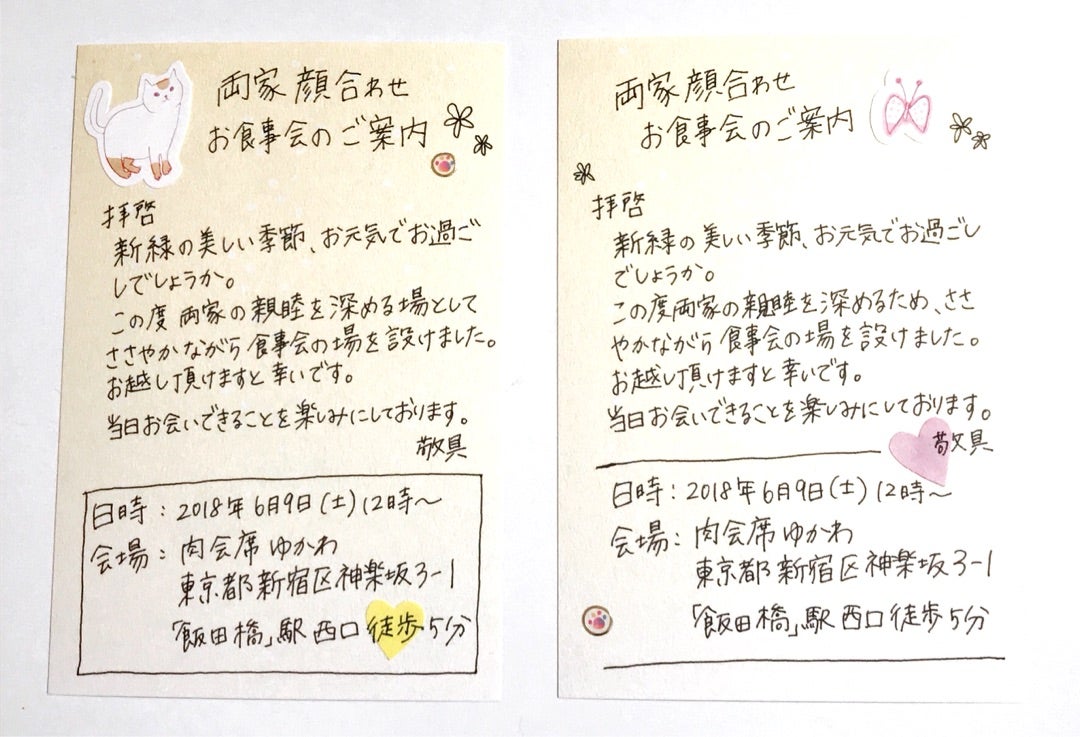 両家顔合わせ
お食事会のご案内
拝啓
新緑の美しい季節、お元気でお過ご
しでしょうか。
この度両家の親睦を深める場として
ささやかながら食事会の場を設けました。
お越し頂けますと幸いです。
当日お会いできることを楽しみにしております。
敬具
日時：2018年6月9日(土)12時～
会場：肉会席ゆかわ
東京都新宿区神楽坂3-1
「飯田橋」駅西口徒歩5分
両家顔合わせ
お食事会のご案内
拝啓
新緑の美しい季節、お元気でお過ごし
でしょうか。
この度両家の親睦を深めるため、ささ
やかながら食事会の場を設けました。
お越し頂けますと幸いです。
当日お会いできることを楽しみにしております。
敬具
日時：2018年6月9日(土)12時～
会場：肉会席ゆかわ
東京都新宿区神楽坂3-1
「飯田橋」駅西口徒歩5分